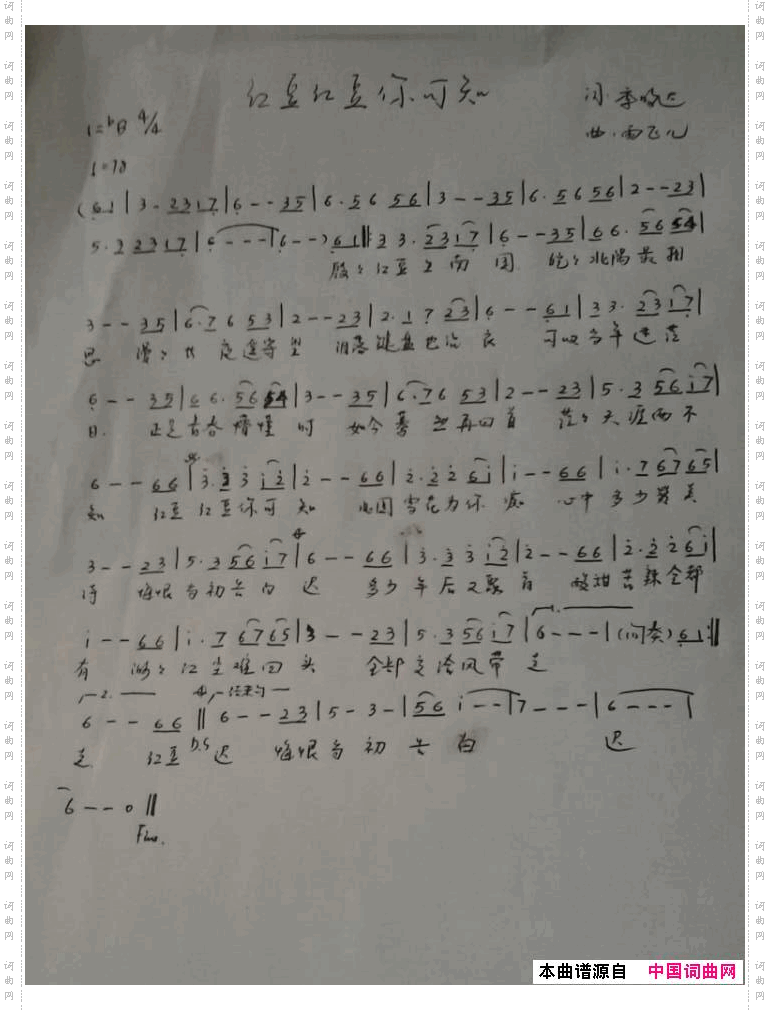 红豆红豆你可知
词·李
1=♭B 4/4
曲·雨飞儿
(6 1|3 - 2 3 1 7|6 - - 3 5|6 · 5 6 5 6|3 - - 3 5|6 · 5 6 5 6|2 - - 2 3|
5 · 2 2 3 1 7|6 - - -|6 - -) 6 1‖: 3 3 · 2 3 1 7|6 - - 3 5|6 6 · 5 6 5 4|
殷殷红豆 南国 北 最相
3 - - 3 5|6 · 7 6 5 3|2 - - 2 3|2 · 1 7 2 3|6 - - 6 1|3 3 · 2 3 1 7|
思 漫漫 键盘 可 当年
6 - - 3 5|6 6 · 5 6 5 4|3 - - 3 5|6 · 7 6 5 3|2 - - 2 3|5 · 3 5 6 i 7|
日 正是青春懵懂时 如今蓦然再回首 茫茫天涯两不
6 - - 6 6|3 · 3 3 i 2|2 - - 6 6|2 · 2 2 6 i|i - - 6 6|i · 7 6 7 6 5|
知 红豆红豆你可知 雪花为你痴 心中多少
3 - - 2 3|5 · 3 5 6 i 7|6 - - 6 6|3 · 3 3 i 2|2 - - 6 6|2 · 2 2 6 i|
悔恨当初告白迟 多少年后又聚首 酸甜苦辣全都
i - - 6 6|i · 7 6 7 6 5|3 - - 2 3|5 · 3 5 6 i 7|6 - - -|(间奏) 6 1 :‖
有 滚滚红尘难回头 全都交给风带走
1.
2.
结束句
6 - - 6 6‖6 - - 2 3|5 - 3 -|5 6 i - -|7 - - -|6 - - -|
走 红豆 D.S 迟 悔恨当初告白 迟
6 - - 0‖
Fine.
本曲谱源自 中国词曲网
词曲网